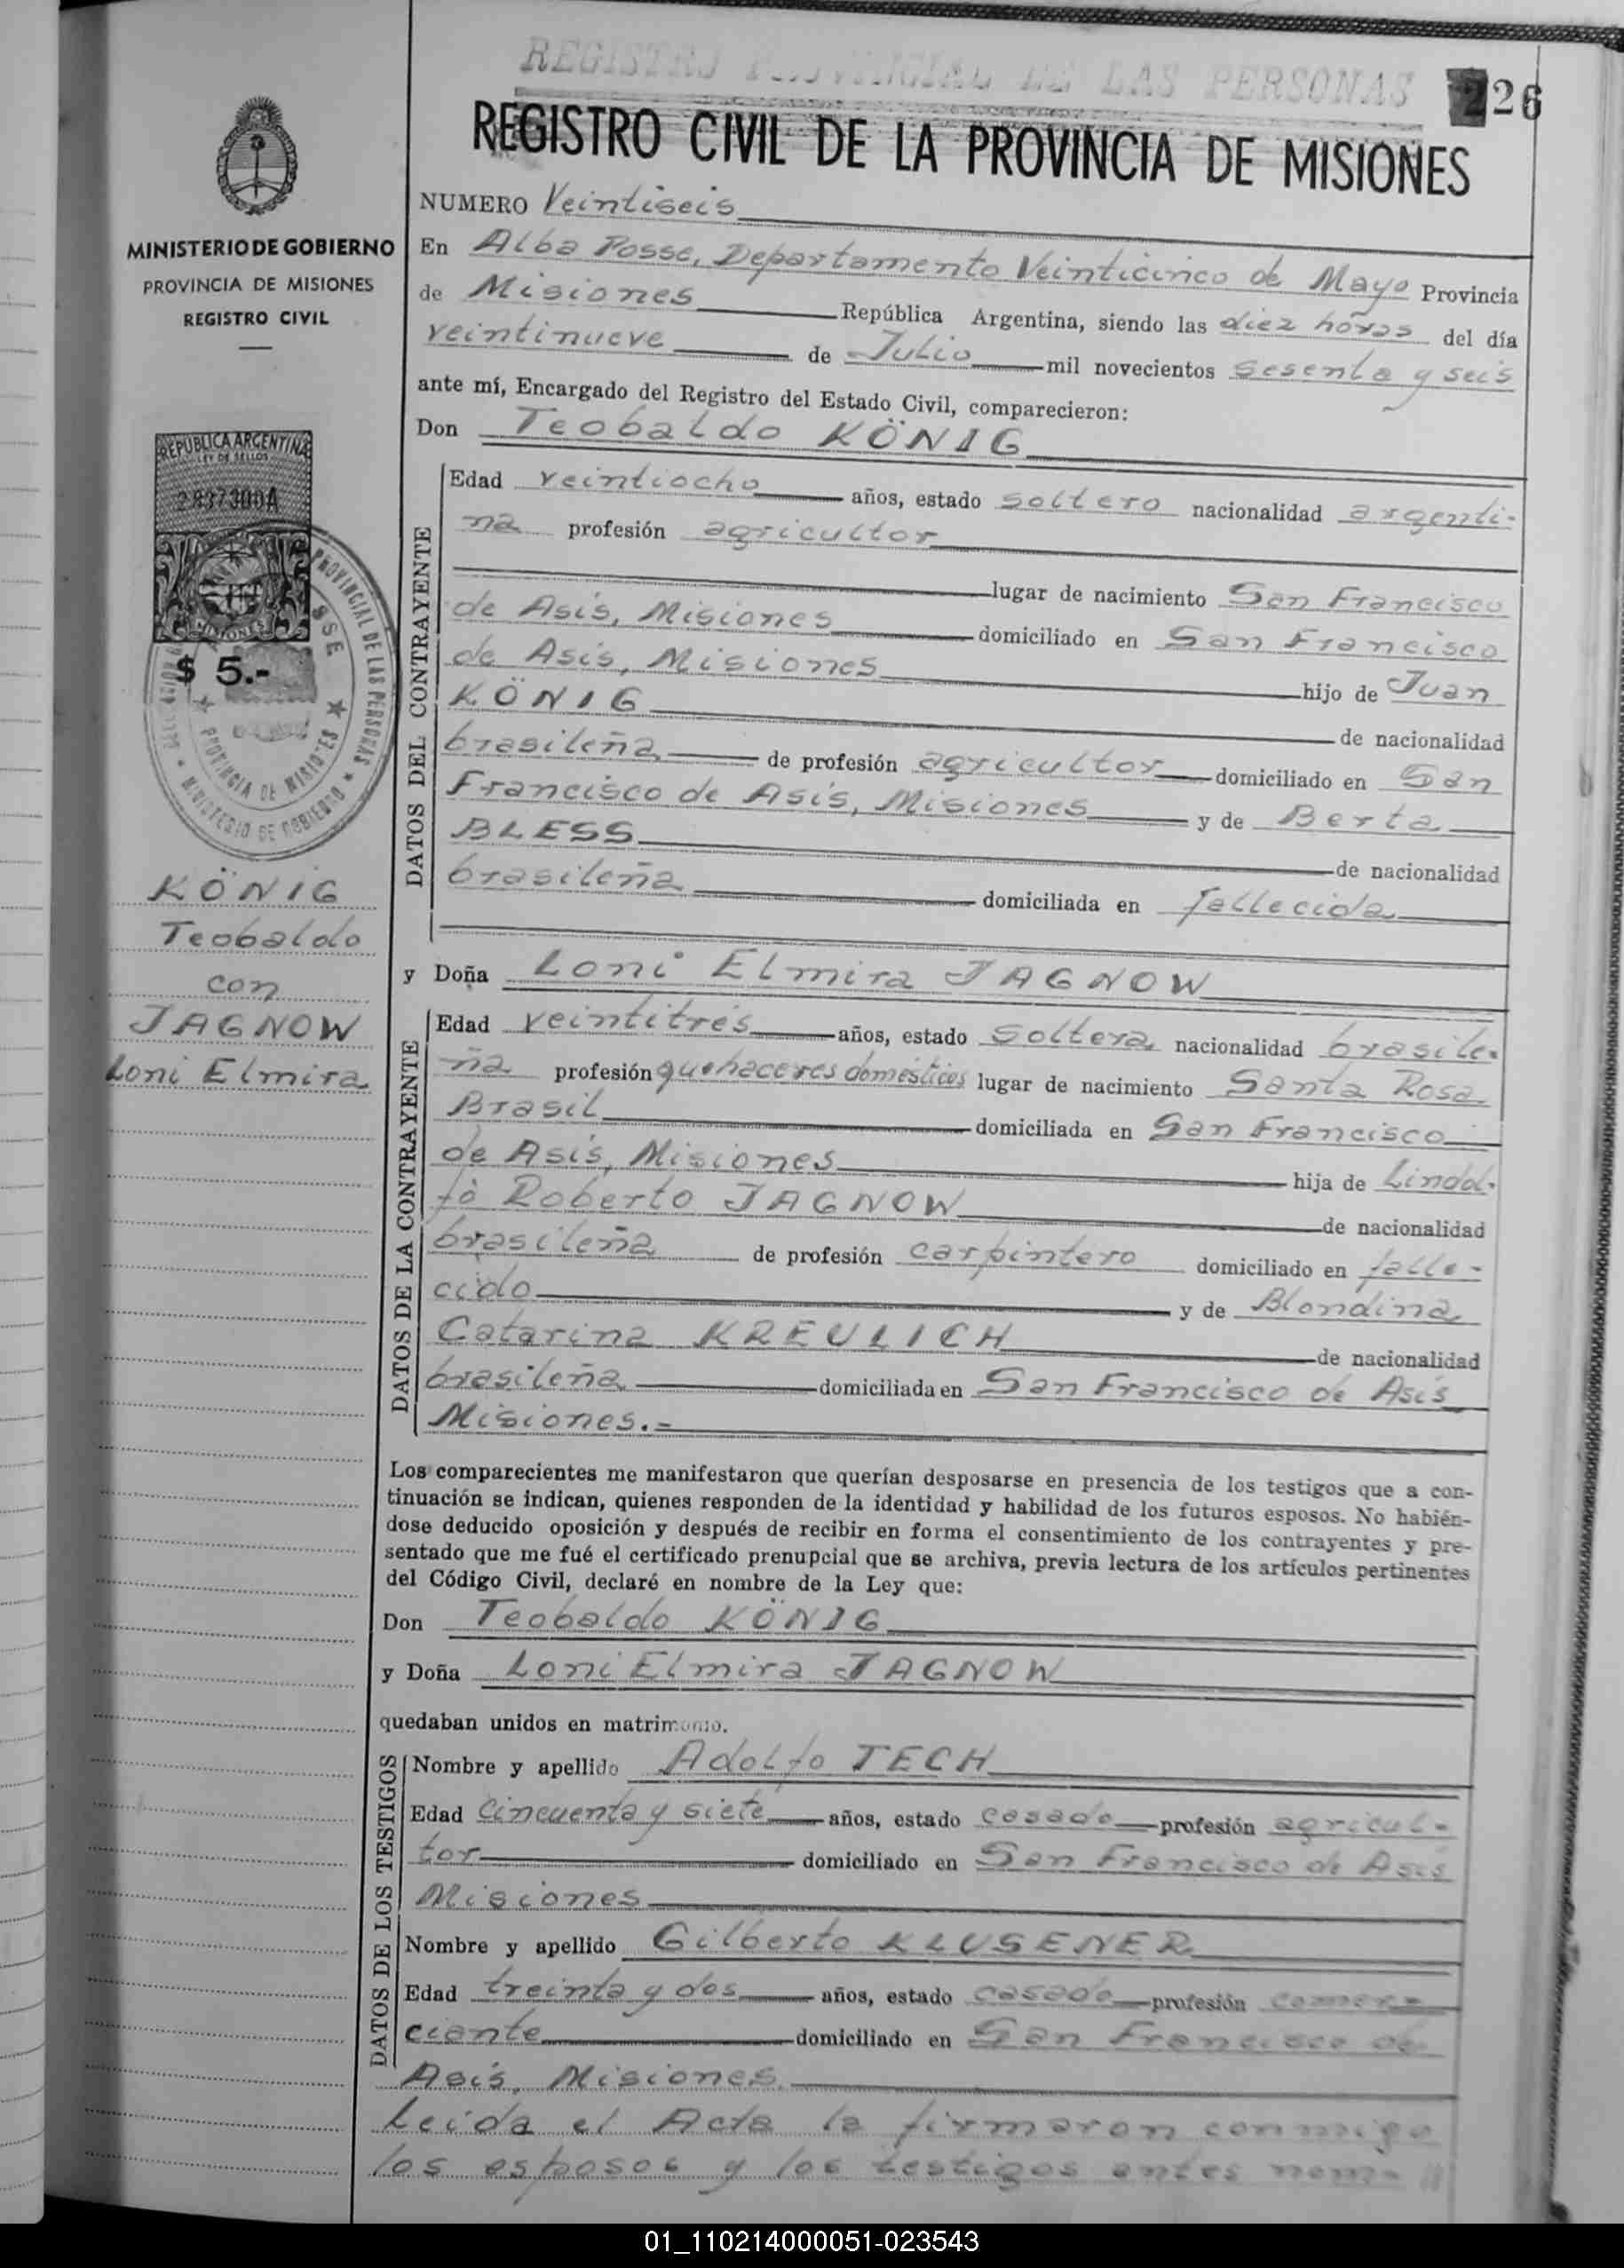 REGISTRO PROVINCIAL DE LAS PERSONAS
226
REGISTRO CIVIL DE LA PROVINCIA DE MISIONES
MINISTERIO DE GOBIERNO
PROVINCIA DE MISIONES
REGISTRO CIVIL
REPUBLICA ARGENTINA
LEY DE SELLOS
MISIONES
$ 5.-
PROVINCIAL DE LAS PERSONAS
PROVINCIA DE MISIONES
MINISTERIO DE GOBIERNO
KÖNIG
Teobaldo
con
JAGNOW
Loni Elmira
NUMERO Veintiseis
En Alba Posse, Departamento Veinticinco de Mayo Provincia
de Misiones República Argentina, siendo las diez horas del día
veintinueve de Julio mil novecientos sesenta y seis
ante mí, Encargado del Registro del Estado Civil, comparecieron:
Don Teobaldo KÖNIG
DATOS DEL CONTRAYENTE
Edad veintiocho años, estado soltero nacionalidad argenti-
na profesión agricultor
lugar de nacimiento San Francisco
de Asís, Misiones domiciliado en San Francisco
de Asís, Misiones hijo de Juan
KÖNIG de nacionalidad
brasileña de profesión agricultor domiciliado en San
Francisco de Asís, Misiones y de Berta
BLESS de nacionalidad
brasileña domiciliada en fallecida
y Doña Loni Elmira JAGNOW
DATOS DE LA CONTRAYENTE
Edad veintitrés años, estado soltera nacionalidad brasile-
ña profesión quehaceres domésticos lugar de nacimiento Santa Rosa
Brasil domiciliada en San Francisco
de Asís, Misiones hija de Lindol-
fo Roberto JAGNOW de nacionalidad
brasileña de profesión carpintero domiciliado en falle-
cido y de Blondina
Catarina KREULICH de nacionalidad
brasileña domiciliada en San Francisco de Asís
Misiones.-
Los comparecientes me manifestaron que querían desposarse en presencia de los testigos que a con-
tinuación se indican, quienes responden de la identidad y habilidad de los futuros esposos. No habién-
dose deducido oposición y después de recibir en forma el consentimiento de los contrayentes y pre-
sentado que me fué el certificado prenupcial que se archiva, previa lectura de los artículos pertinentes
del Código Civil, declaré en nombre de la Ley que:
Don Teobaldo KÖNIG
y Doña Loni Elmira JAGNOW
quedaban unidos en matrimonio.
DATOS DE LOS TESTIGOS
Nombre y apellido Adolfo TECH
Edad Cincuenta y siete años, estado casado profesión agricul-
tor domiciliado en San Francisco de Asís
Misiones
Nombre y apellido Gilberto KLUSENER
Edad treinta y dos años, estado casado profesión comer-
ciante domiciliado en San Francisco de
Asís, Misiones.
Leída el Acta la firmaron conmigo
los esposos y los testigos antes nom-
01_110214000051-023543